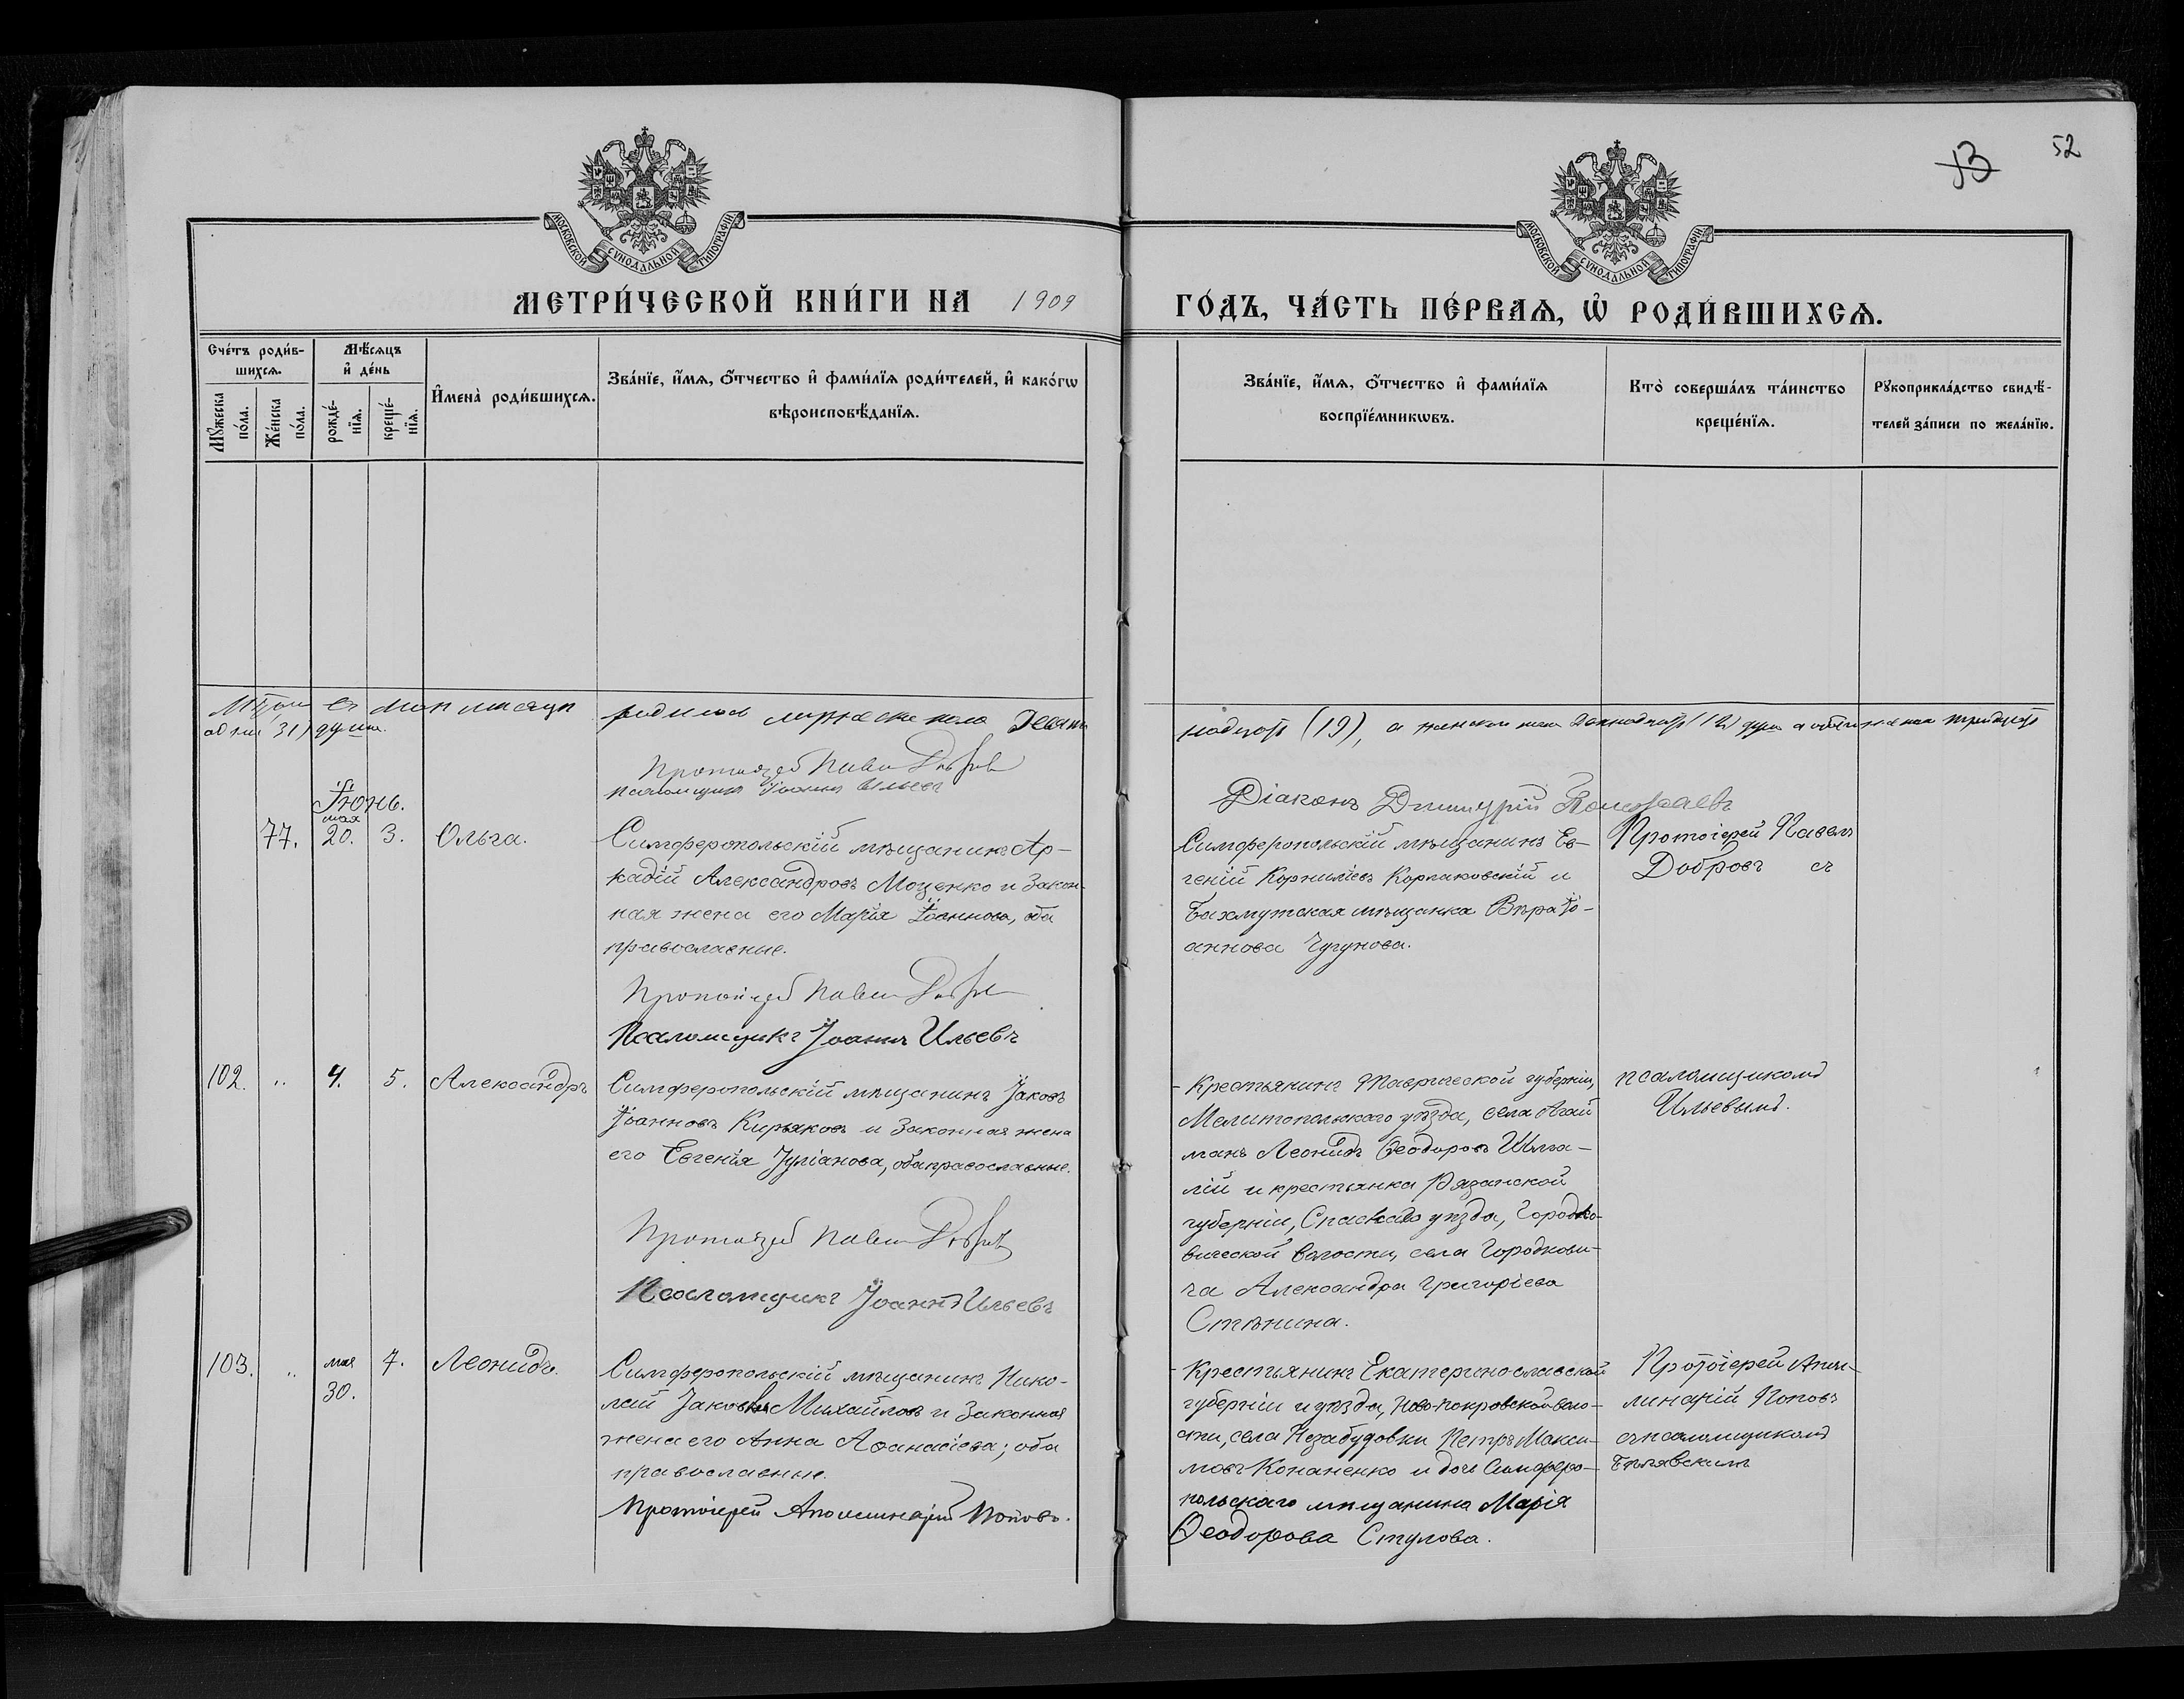 53
52
МОСКОВСКОЙ СѴНОДАЛЬНОЙ ТИПОГРАФІИ
МОСКОВСКОЙ СѴНОДАЛЬНОЙ ТИПОГРАФІИ
МЕТРИ́ЧЕСКОЙ КНИ́ГИ НА 1909
ГО́ДЪ, ЧА́СТЬ ПЕ́РВАѦ, Ѿ РОДИ́ВШИХСѦ.
Сче́тъ роди́в-
шихсѧ.
Мꙋ́жеска
по́ла.
Же́нска
по́ла.
Мѣ́сѧцъ
и҆ де́нь
рожде́-
нїѧ.
креще́-
нїѧ.
И҆мена̀ роди́вшихсѧ.
Зва́нїе, и҆́мѧ, ѻ҆́тчество и҆ фами́лїѧ роди́телей, и҆ како́гѡ
вѣроисповѣ́данїѧ.
Зва́нїе, и҆́мѧ, ѻ҆́тчество и҆ фами́лїѧ
воспрїе́мникѡвъ.
Кто̀ соверша́лъ та́инство
креще́нїѧ.
Рꙋкоприкла́дство свидѣ́-
телей за́писи по жела́нїю.
Итого въ маѣ мѣсяцѣ родилось мужеска пола девят
надцать (19), а женска пола двѣнадцать (12) душъ а обоего пола тридцать
одна (31) душа.
Протоіерей Павелъ Добровъ
Псаломщикъ Іоаннъ Ильевъ
Діаконъ Димитрій
Іюнь.
77.
мая
20.
3.
Ольга.
Симферопольскій мѣщанинъ Ар-
кадій Александровъ Моценко и закон-
ная жена его Марія Іоаннова, оба
православные.
Протоіерей Павелъ Добровъ
Псаломщикъ Іоаннъ Ильевъ
Симферопольскій мѣщанинъ Ев-
геній Корниліевъ Корлаковскій и
Бахмутская мѣщанка Вѣра Іо-
аннова Чугунова.
Протоіерей Павелъ
Добровъ съ
102.
"
4.
5.
Александръ
Симферопольскій мѣщанинъ Іаковъ
Іоанновъ Кирьяковъ и законная жена
его Евгенія Іуліанова, оба православные.
Протоіерей Павелъ Добровъ
Псаломщикъ Іоаннъ Ильевъ
Крестьянинъ Таврической губерніи,
Мелитопольскаго уѣзда, села Агай
манъ Леонидъ Ѳеодоровъ
лій и крестьянка Рязанской
губерніи, Спасскаго уѣзда, Городко-
вической волости, села Городкови-
ча Александра Григоріева
Стѣнина.
псаломщикомъ
Ильевымъ.
103.
"
мая
30.
7.
Леонидъ.
Симферопольскій мѣщанинъ Нико-
лай Іаковлевъ Михайловъ и законная
жена его Анна Аѳанасіева; оба
православные.
Протоіерей Аполлинарій Поповъ.
Крестьянинъ Екатеринославской
губерніи и уѣзда, Ново-Покровской воло-
сти, села Незабудовки Петръ Макси-
мовъ Кононенко и дочь Симферо-
польскаго мѣщанина Марія
Ѳеодорова Стулова.
Протоіерей Апол-
линарій Поповъ
съ псаломщикомъ
Бѣлявскимъ